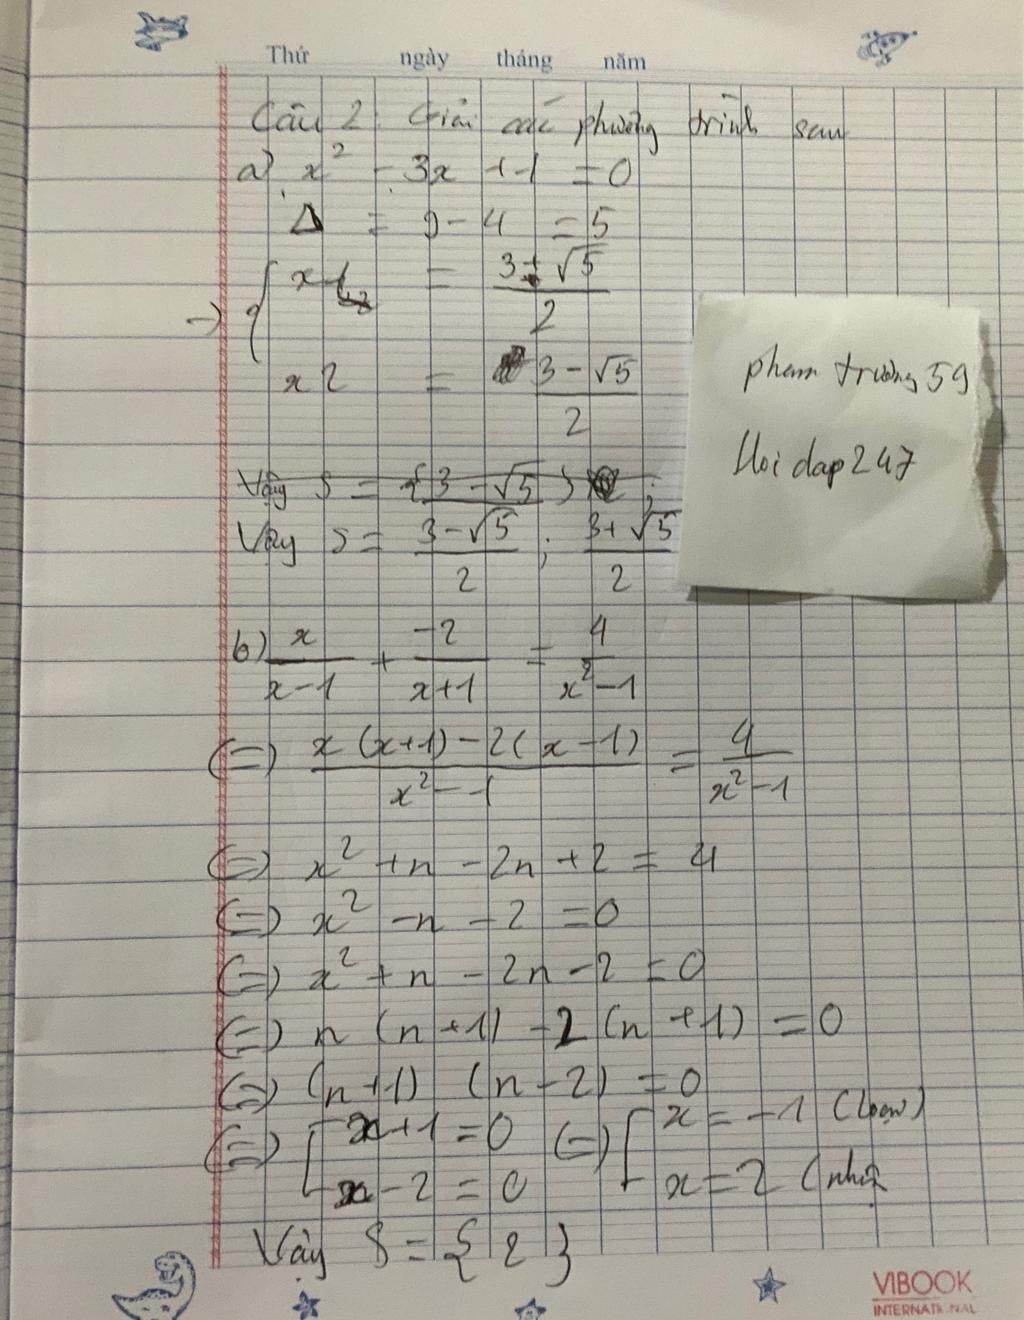 Thứ ngày tháng năm
Câu 2: Giải các phương trình sau
a) x² - 3x + 1 = 0
Δ = 9 - 4 = 5
→ { x1 = (3 + √5)/2
x2 = (3 - √5)/2
Vậy S = {3 - √5}
Vậy S = (3 - √5)/2 ; (3 + √5)/2
phamtruong59
Hoidap247
b) x/(x-1) + -2/(x+1) = 4/(x²-1)
(=) (x(x+1) - 2(x-1))/(x²-1) = 4/(x²-1)
(=) x² + n - 2n + 2 = 4
(=) x² - n - 2 = 0
(=) x² + n - 2n - 2 = 0
(=) n (n+1) - 2 (n+1) = 0
(=) (n+1) (n-2) = 0
(=) [ x+1 = 0 (=) [ x = -1 (loại)
x - 2 = 0 x = 2 (nhận
Vậy S = { 2 }
VIBOOK
INTERNATIONAL